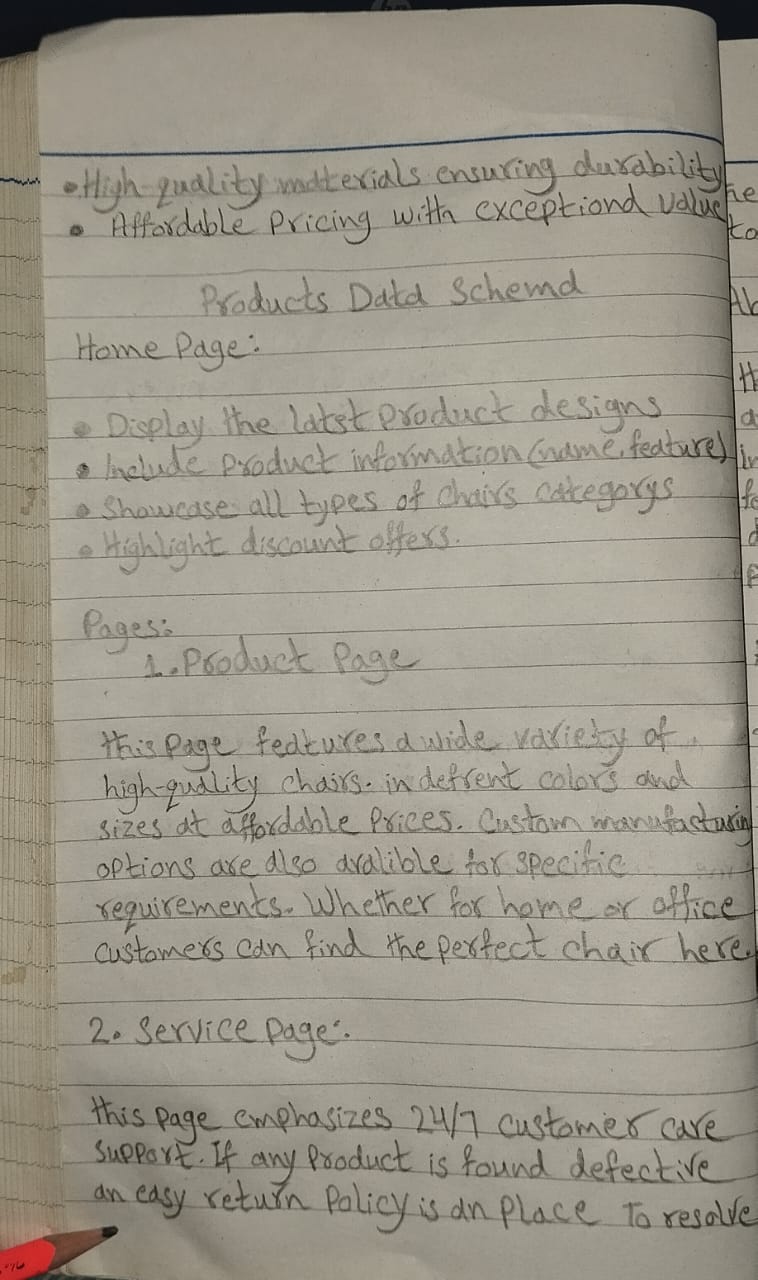 • High-quality materials ensuring durability
• Affordable Pricing with exceptional value
Products Data Schema
Home Page:
• Display the latst product designs
• Include product information (name, feature)
• Showcase all types of chairs categorys
• Highlight discount offers.
Pages:
1. Product Page
this page features a wide variety of
high-quality chairs. in defrent colors and
sizes at affordable Prices. Custom manufacturing
options are also avalible for specific
requirements. Whether for home or office
customers can find the perfect chair here.
2. Service page:
this page emphasizes 24/7 customer care
support. If any product is found defective
an easy return Policy is an place To resolve